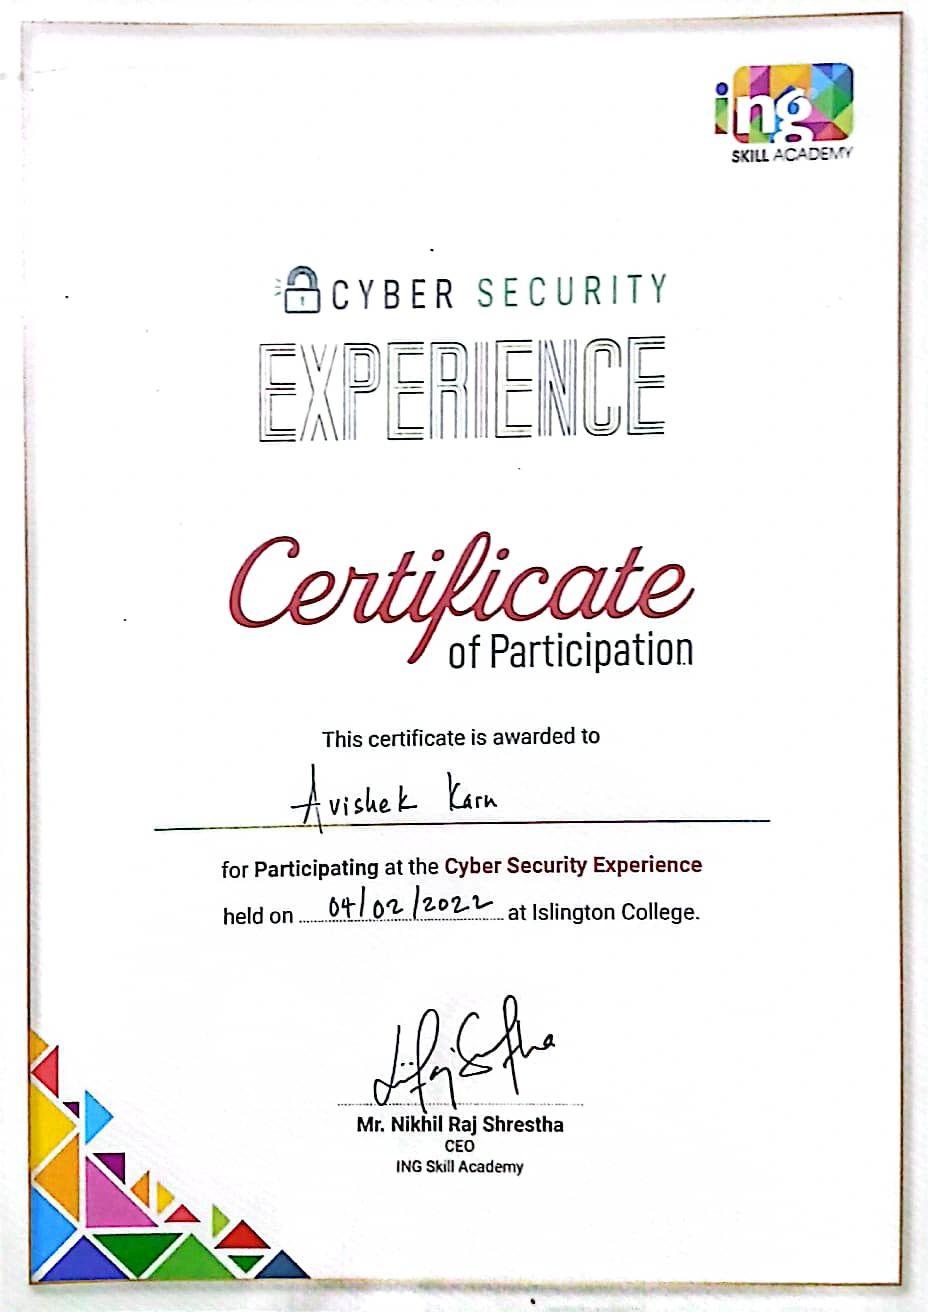 ing
SKILL ACADEMY
CYBER SECURITY
EXPERIENCE
Certificate
of Participation
This certificate is awarded to
Avishek Karn
for Participating at the Cyber Security Experience
held on 04/02/2022 at Islington College.
Mr. Nikhil Raj Shrestha
CEO
ING Skill Academy